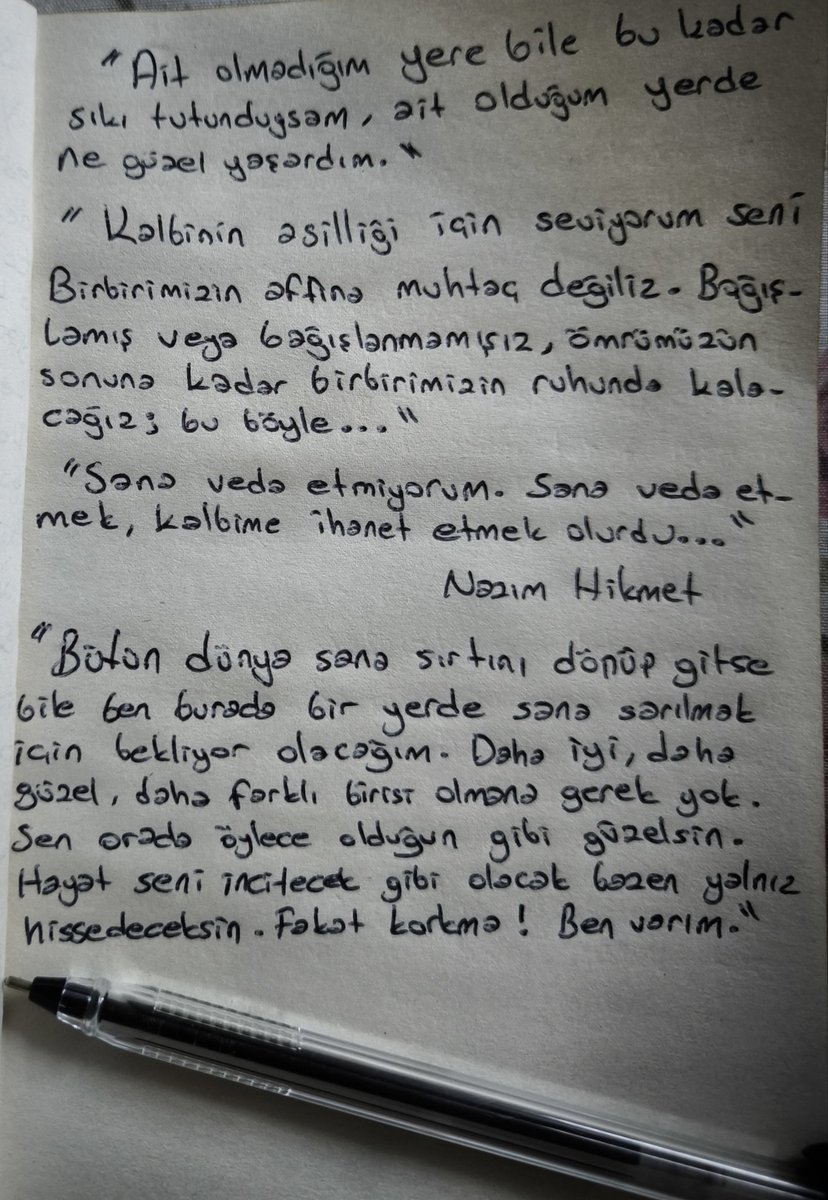 "Ait olmadığım yere bile bu kadar
sıkı tutunduysam, ait olduğum yerde
ne güzel yaşardım."
"Kalbinin asilliği için seviyorum seni
Birbirimizin affına muhtaç değiliz. Bağış-
lamış veya bağışlanmamışız, ömrümüzün
sonuna kadar birbirimizin ruhunda kala-
cağız; bu böyle..."
"Sana veda etmiyorum. Sana veda et-
mek, kalbime ihanet etmek olurdu..."
Nazım Hikmet
"Bütün dünya sana sırtını dönüp gitse
bile ben burada bir yerde sana sarılmak
için bekliyor olacağım. Daha iyi, daha
güzel, daha farklı birisi olmana gerek yok.
Sen orada öylece olduğun gibi güzelsin.
Hayat seni incitecek gibi olacak bazen yalnız
hissedeceksin. Fakat korkma! Ben varım."